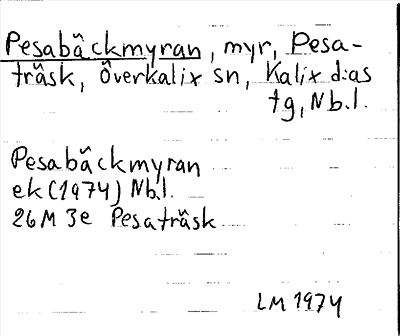 Pesabäckmyran, myr, Pesa-
träsk, Överkalix sn, Kalix d:as
tg, Nb.l.
Pesabäckmyran
ek (1974) Nb.l.
26M 3e Pesaträsk
LM 1974